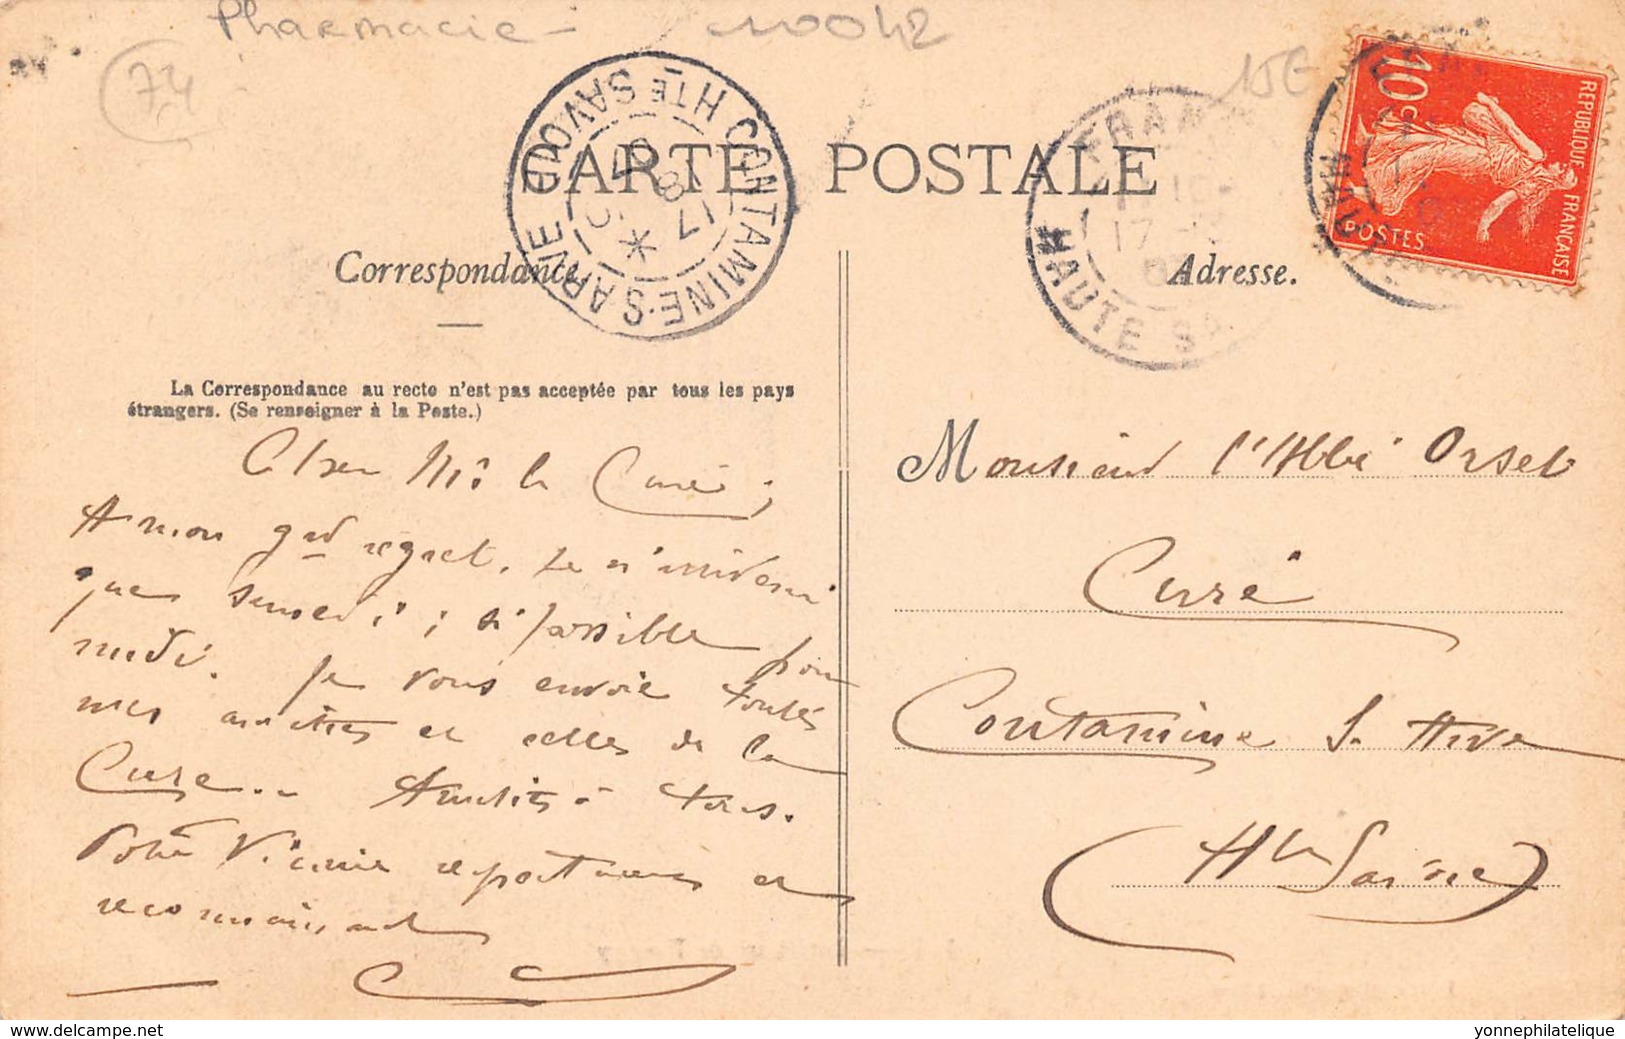 Pharmacie - 10042
74
15E
CARTE POSTALE
CONTAMINE-S-ARVE HTE SAVOIE
17 8 07
HAUTE SA
17
RÉPUBLIQUE FRANÇAISE
10c
POSTES
Correspondance
Adresse.
La Correspondance au recto n'est pas acceptée par tous les pays
étrangers. (Se renseigner à la Poste.)
Cher Mr le Curé ;
A mon grd regret, je n'arriverai
que samedi ; si possible pour
midi. Je vous envoie toutes
mes amitiés et celles de la
Cure. - Amitiés à tous.
Votre Vicaire respectueux et
reconnaissant
Monsieur l'Abbé Orset
Curé
Contamine S. Arve
(Hte Savoie)
yonnephilatelique